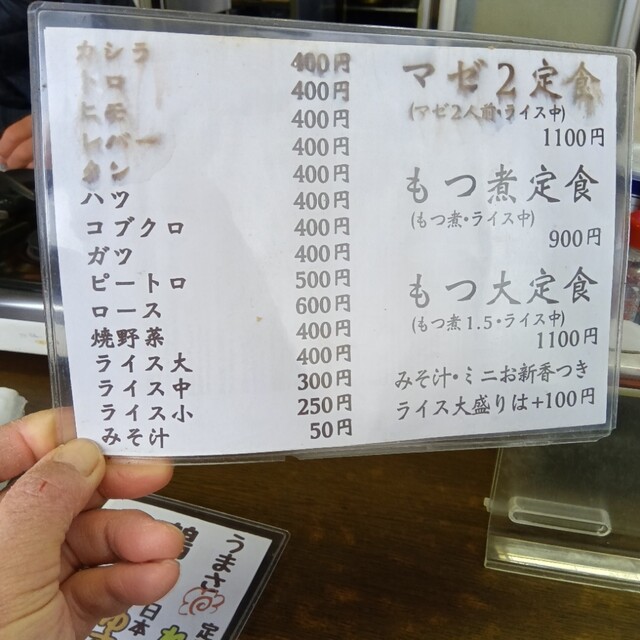 カシラ 400円
トロ 400円
ヒモ 400円
レバー 400円
タン 400円
ハツ 400円
コブクロ 400円
ガツ 400円
ピートロ 500円
ロース 600円
焼野菜 400円
ライス大 400円
ライス中 300円
ライス小 250円
みそ汁 50円
マゼ2定食
(マゼ2人前・ライス中)
1100円
もつ煮定食
(もつ煮・ライス中)
900円
もつ大定食
(もつ煮1.5・ライス中)
1100円
みそ汁・ミニお新香つき
ライス大盛りは+100円
うまさ
日本
定